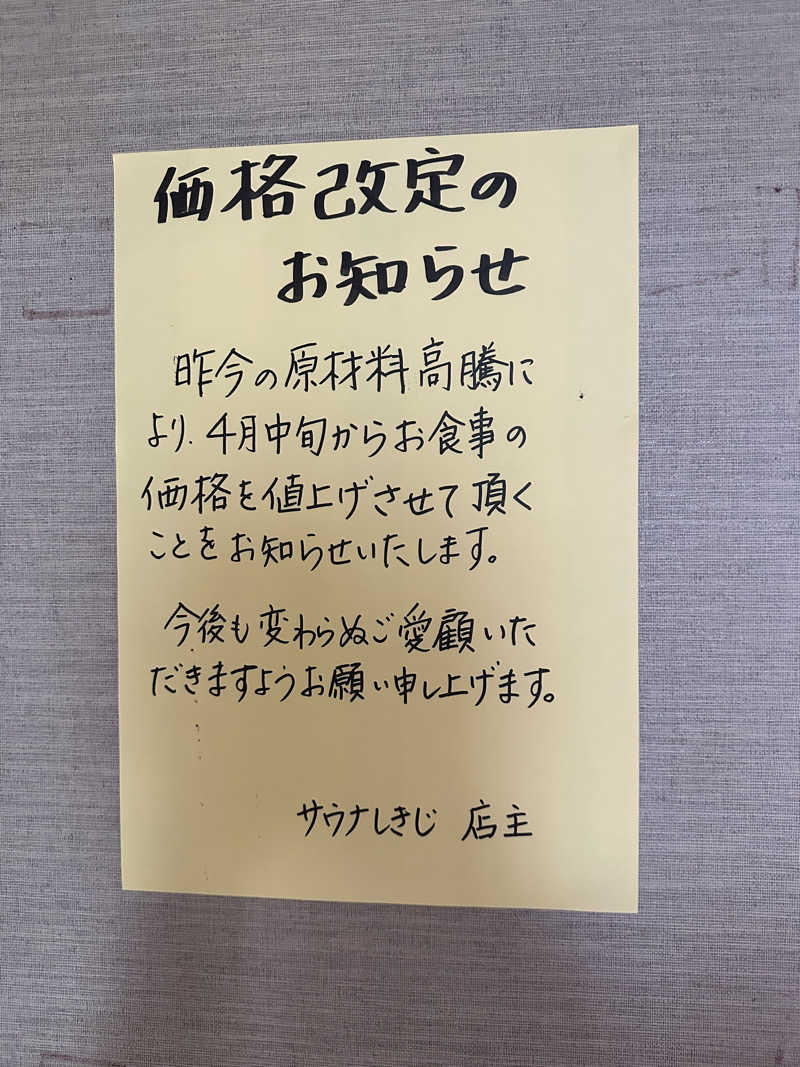 価格改定の
お知らせ
昨今の原材料高騰に
より、4月中旬からお食事の
価格を値上げさせて頂く
ことをお知らせいたします。
今後も変わらぬご愛顧いた
だきますようお願い申し上げます。
サウナしきじ 店主